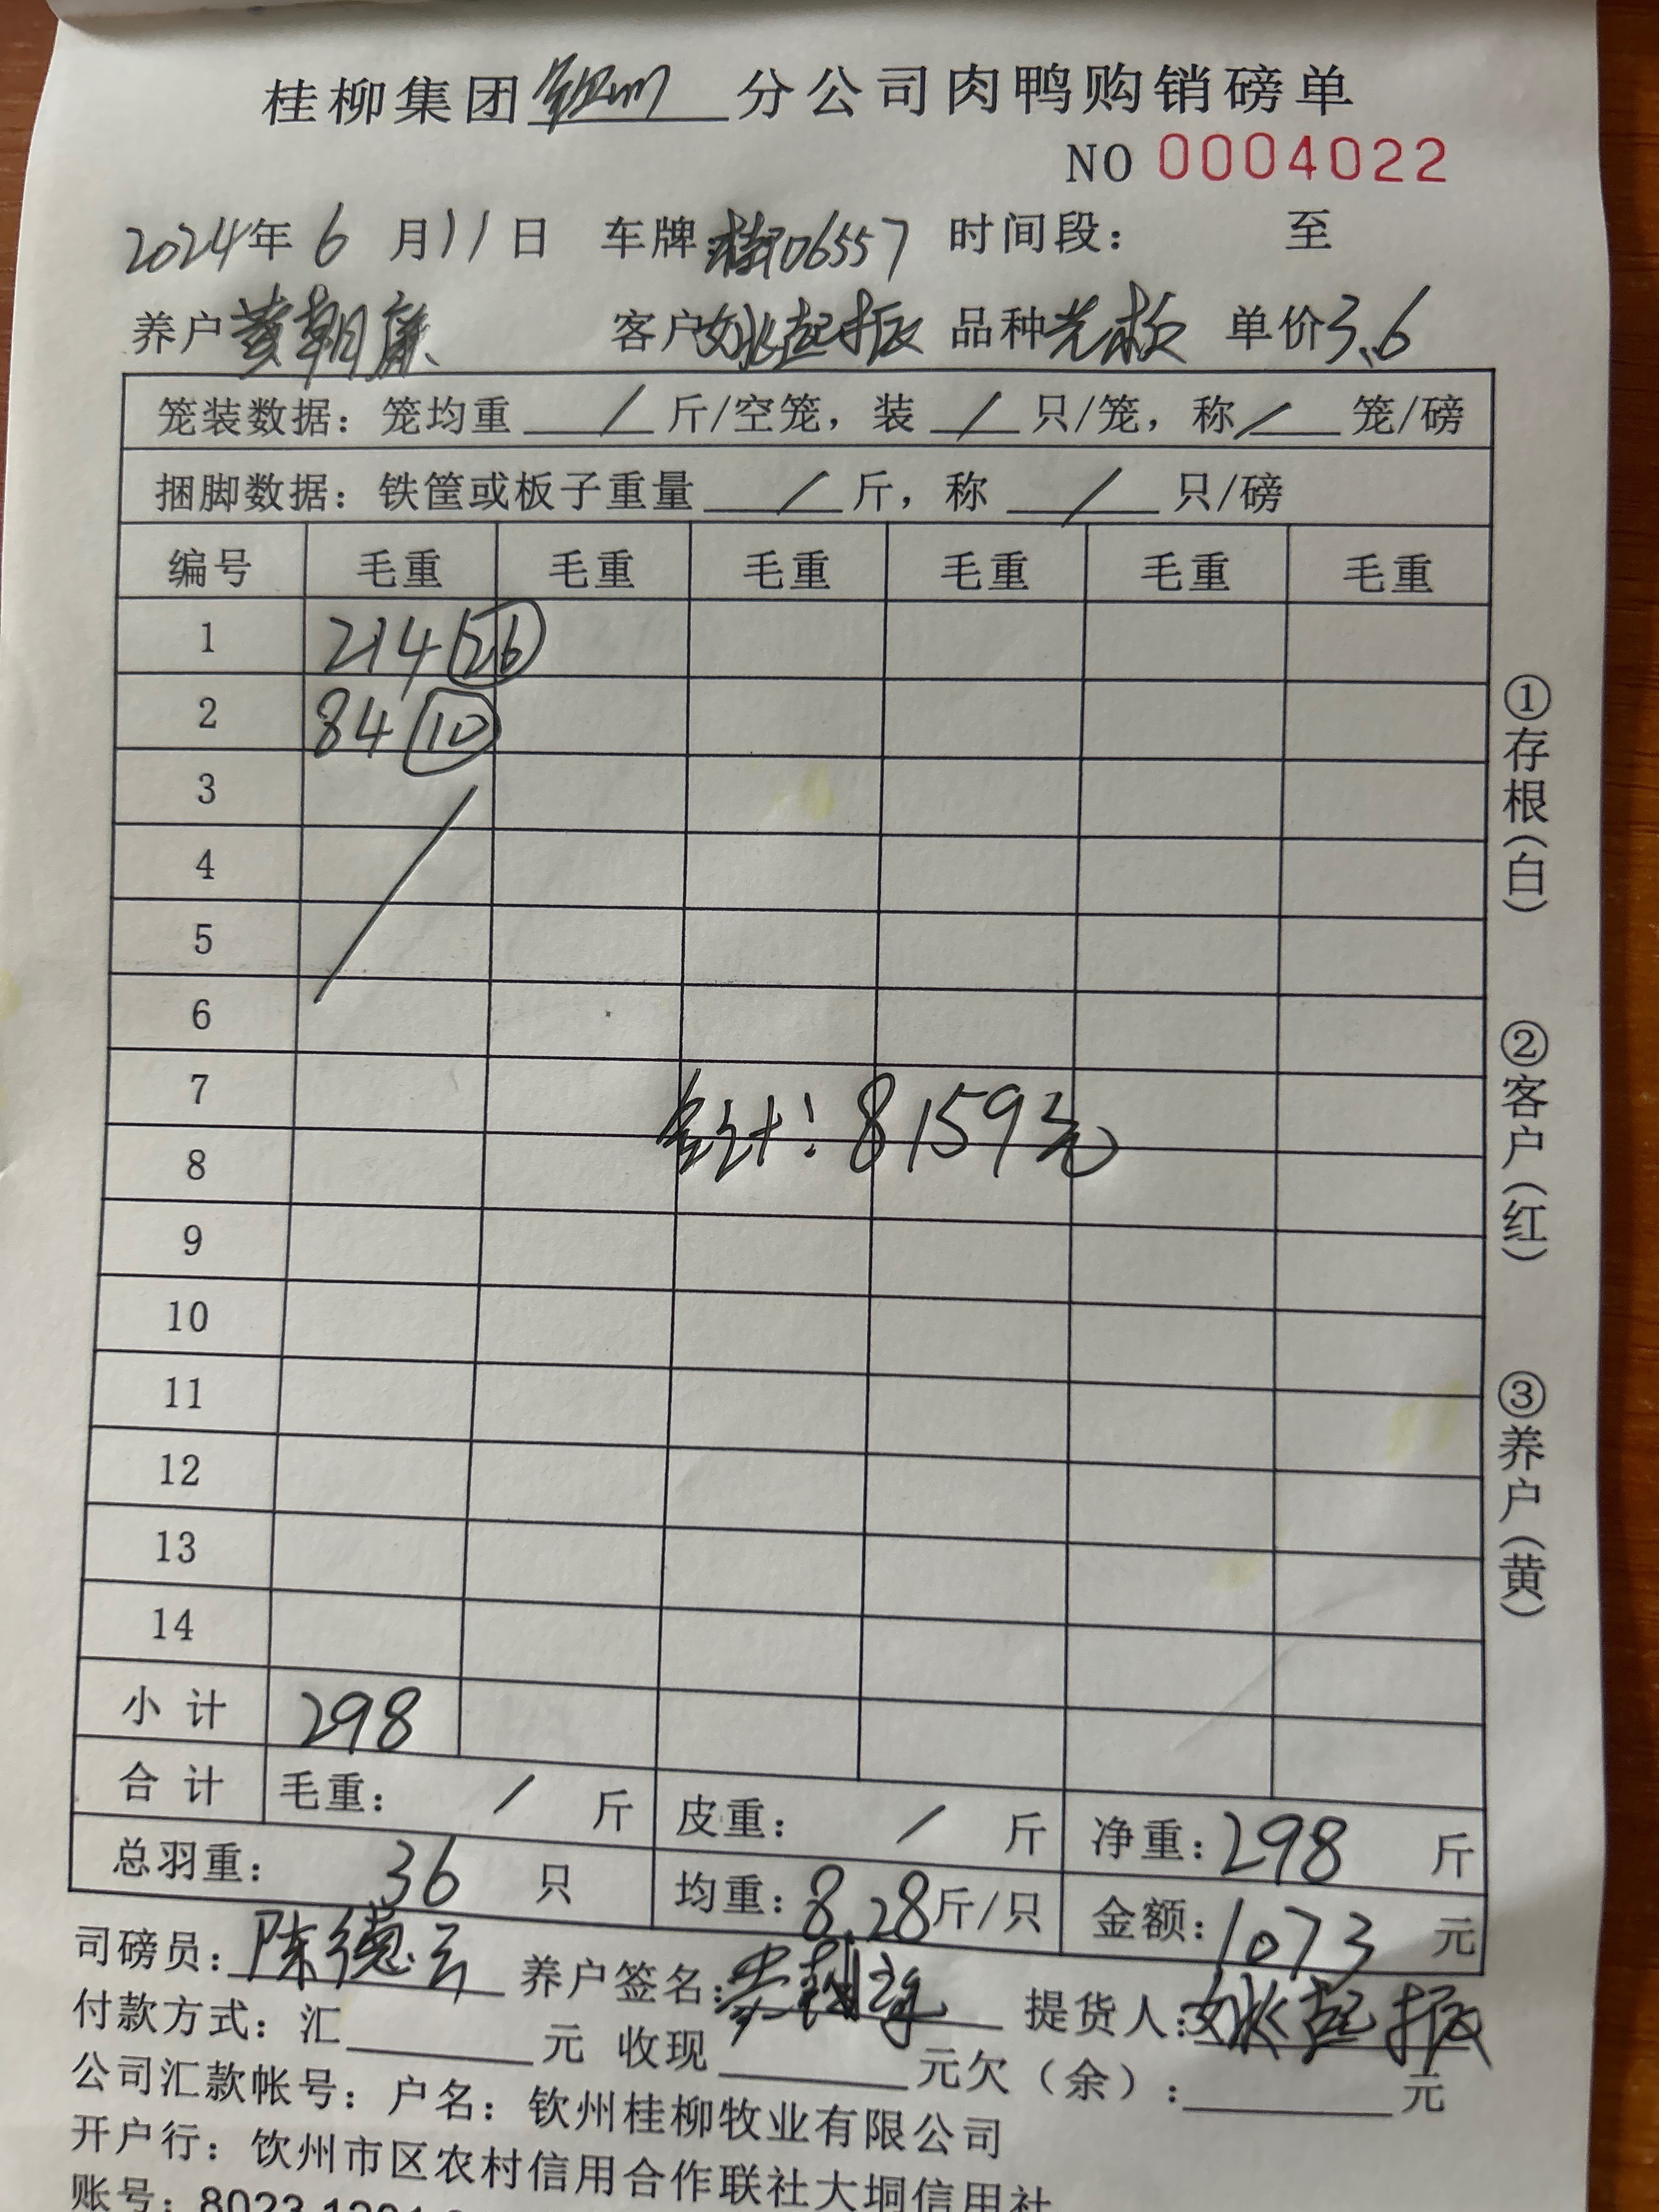 桂柳集团钦州分公司肉鸭购销磅单
NO 0004022
2024年6月11日 车牌:桂 06557 时间段: 至
养户黄朝廉 客户 起振 品种光板 单价3.6
笼装数据:笼均重 / 斤/空笼,装 / 只/笼,称 / 笼/磅
捆脚数据:铁筐或板子重量 / 斤,称 / 只/磅
编号 毛重 毛重 毛重 毛重 毛重 毛重
1 214 26
2 84 10
3
4
5
6
7
合计:8159元
8
9
10
11
12
13
14
小计 298
合计 毛重: / 斤 皮重: / 斤 净重:298 斤
总羽重: 36 只 均重:8.28斤/只 金额:1073元
司磅员:陈德云 养户签名: 提货人: 起振
付款方式:汇 元 收现 元欠(余): 元
公司汇款帐号:户名:钦州桂柳牧业有限公司
开户行:钦州市区农村信用合作联社大垌信用社
账号:8023
①存根(白)
②客户(红)
③养户(黄)